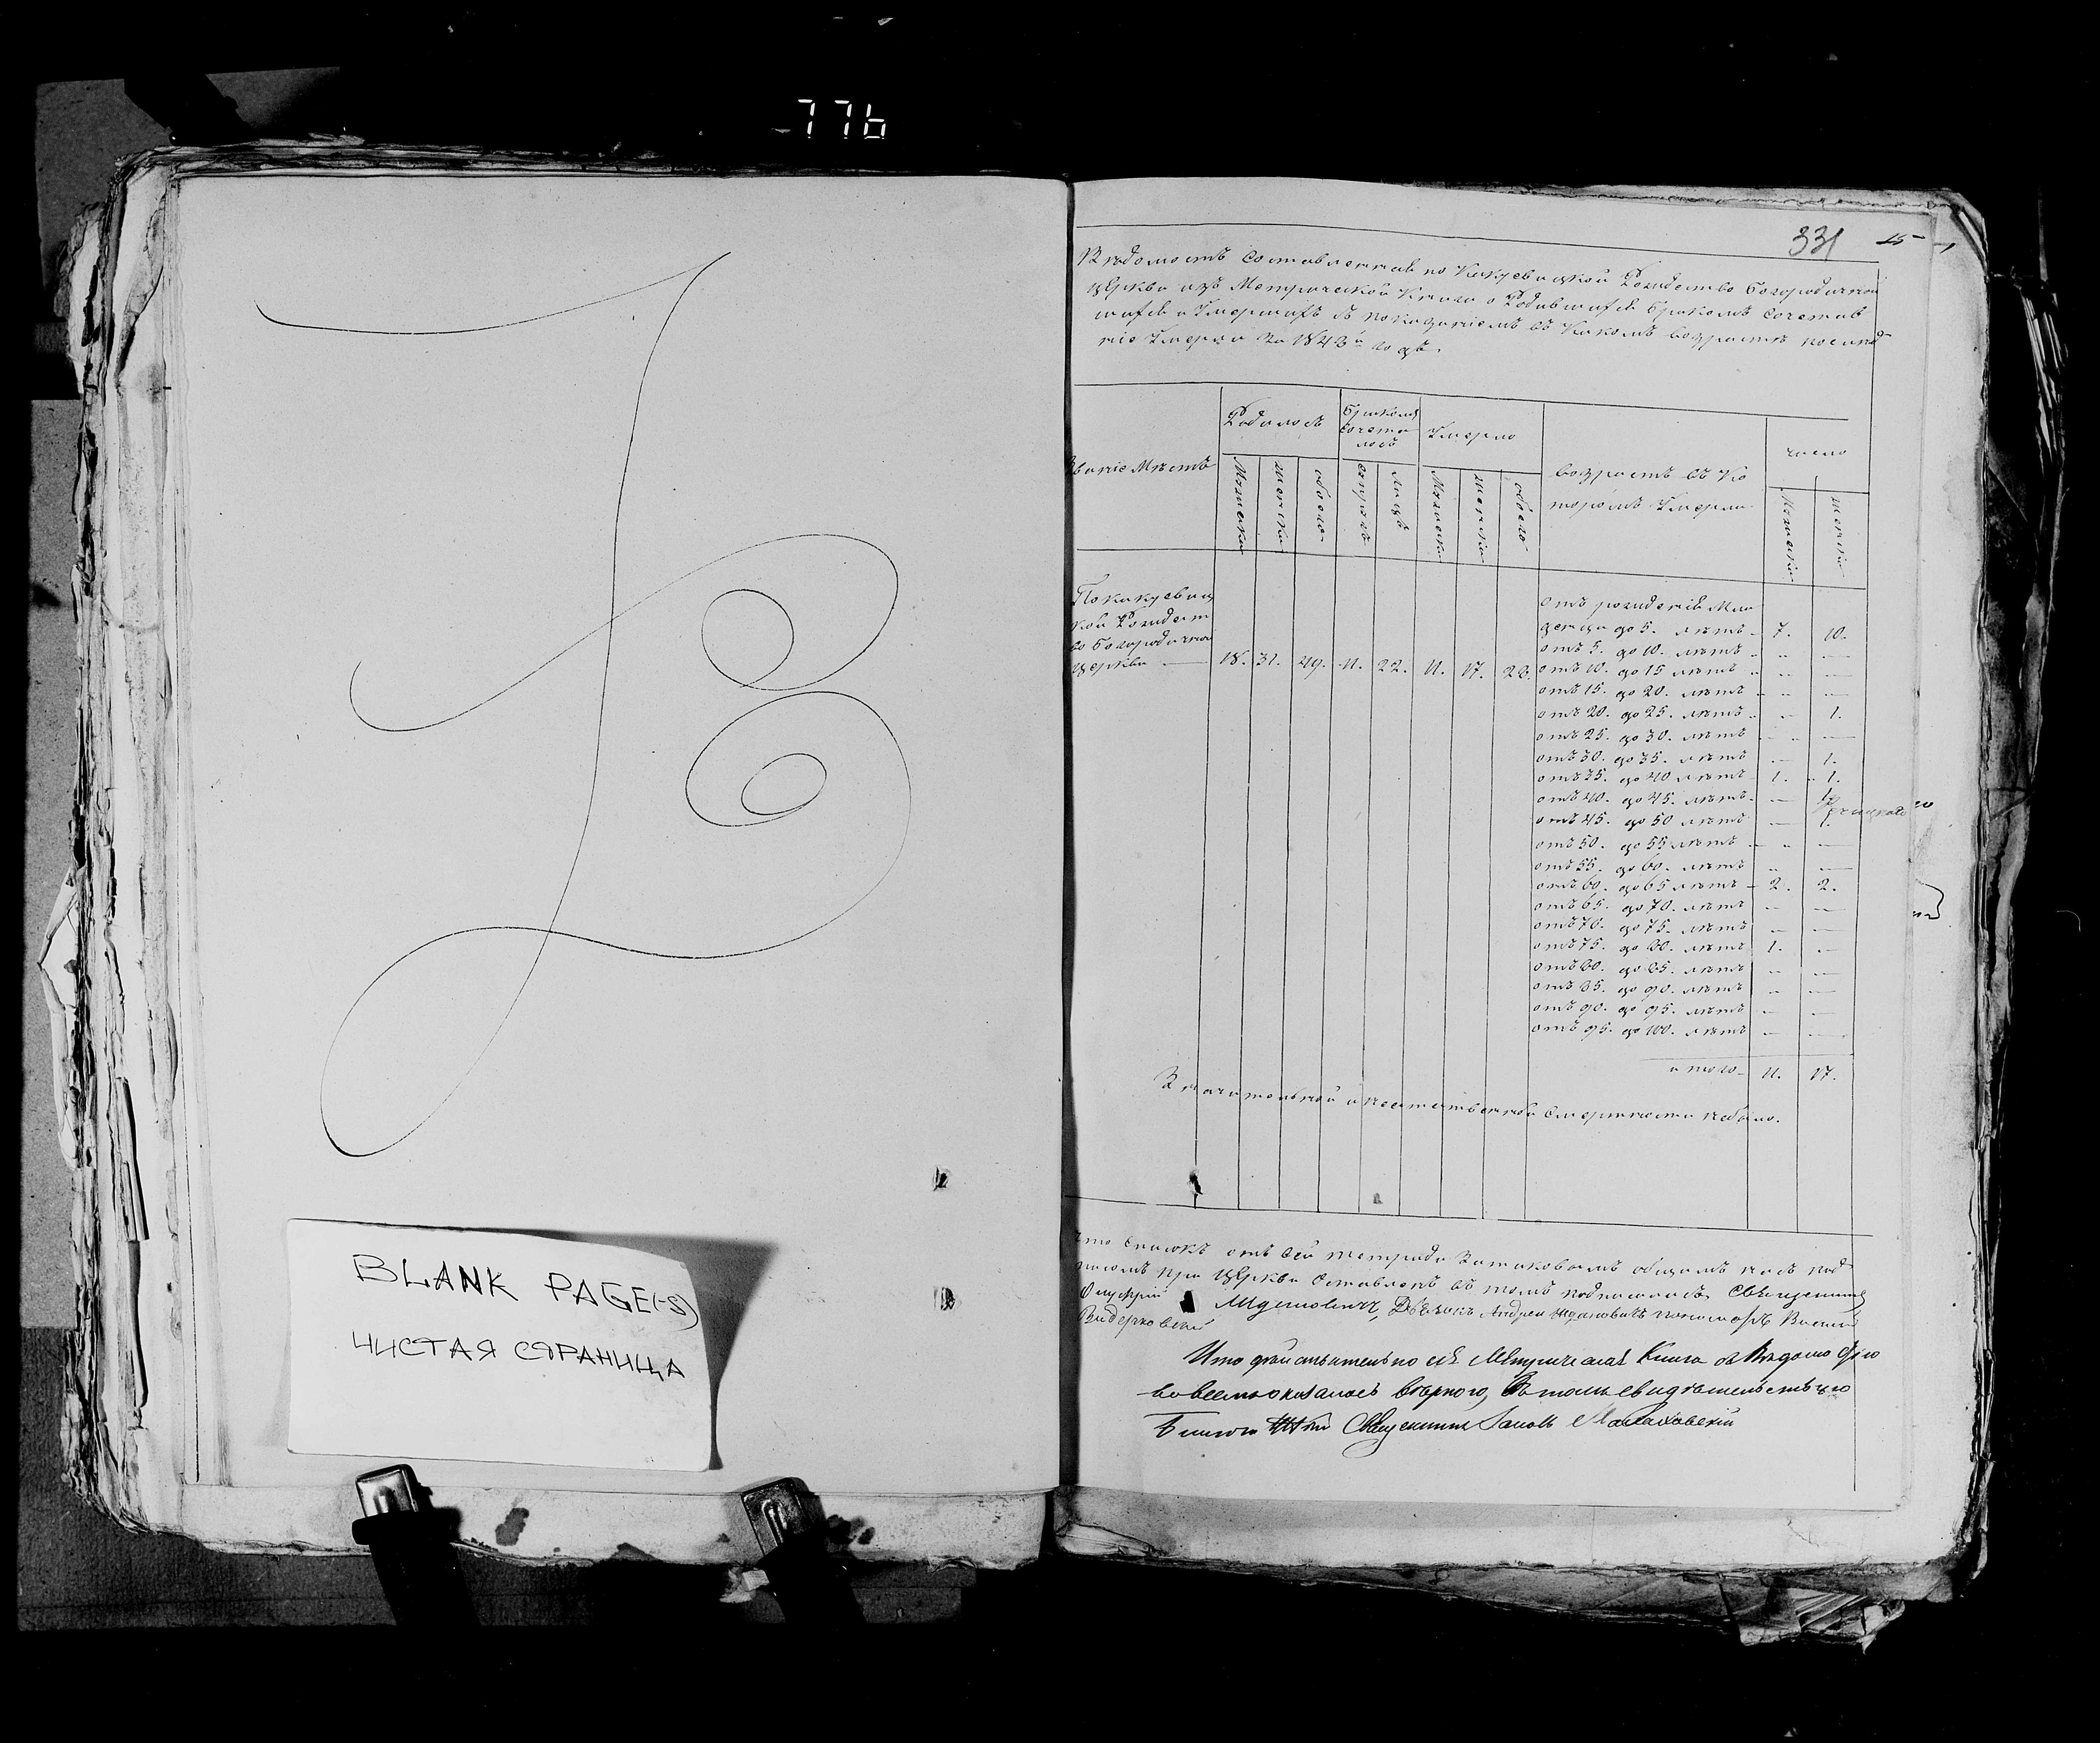 776
331 15
Вѣдомость Составленная по Кикуевицкой Рождество Богородичной
церкви изъ Метрической Книги о Родившихся Бракомъ Сочетав
шихся и Умершихъ съ показаніемъ въ Какомъ возрастѣ послѣд
ніе Умерли За 1843й годъ.
Родилось
Бракомъ Сочета лось
Умерло
возрастъ въ Ко торомъ Умерли
число
званіе Мѣстъ
Мужеска
женска
обоего
супруж
лицъ
Мужеска
женска
обоего
Мужеска
женска
По кикуевиц
кой Рождест
во Богородичной
церкви — 18. 31. 49. 11. 22. 11. 17. 28.
отъ рожденія Мла
денцы до 5. лѣтъ - 7. 10.
отъ 5. до 10. лѣтъ - -
отъ 10. до 15 лѣтъ - -
отъ 15. до 20. лѣтъ - -
отъ 20. до 25. лѣтъ - 1.
отъ 25. до 30. лѣтъ - -
отъ 30. до 35. лѣтъ - 1.
отъ 35. до 40 лѣтъ 1. 1.
отъ 40. до 45. лѣтъ - 1.
отъ 45. до 50 лѣтъ - 1.
отъ 50. до 55 лѣтъ - -
отъ 55. до 60. лѣтъ - -
отъ 60. до 65 лѣтъ - 2. 2.
отъ 65. до 70. лѣтъ - -
отъ 70. до 75. лѣтъ - -
отъ 75. до 80. лѣтъ 1. -
отъ 80. до 85. лѣтъ - -
отъ 85. до 90. лѣтъ - -
отъ 90. до 95. лѣтъ - -
отъ 95. до 100. лѣтъ - -
итого - 11. 17.
Значительной и неестественной Смертности небыло.
что списокъ отъ сей тетради За таковымъ общимъ насъ под
писомъ при Церкви Оставленъ въ томъ подписались Священникъ
Ждановичъ, Дьячокъ Андрей Ждановичъ пономарь
Что дѣйствительно сія Метрическая Книга съ Вѣдомостію
во всемъ оказалась вѣрною, въ томъ свидѣтельствую
Священникъ
BLANK PAGE(-S)
ЧИСТАЯ СТРАНИЦА